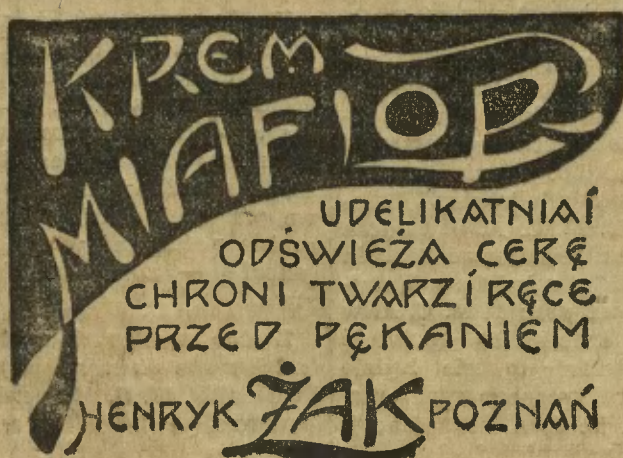 KREM
MIAFLOR
UDELIKATNIA I
ODŚWIEŻA CERĘ
CHRONI TWARZ I RĘCE
PRZED PĘKANIEM
HENRYK ŻAK POZNAŃ